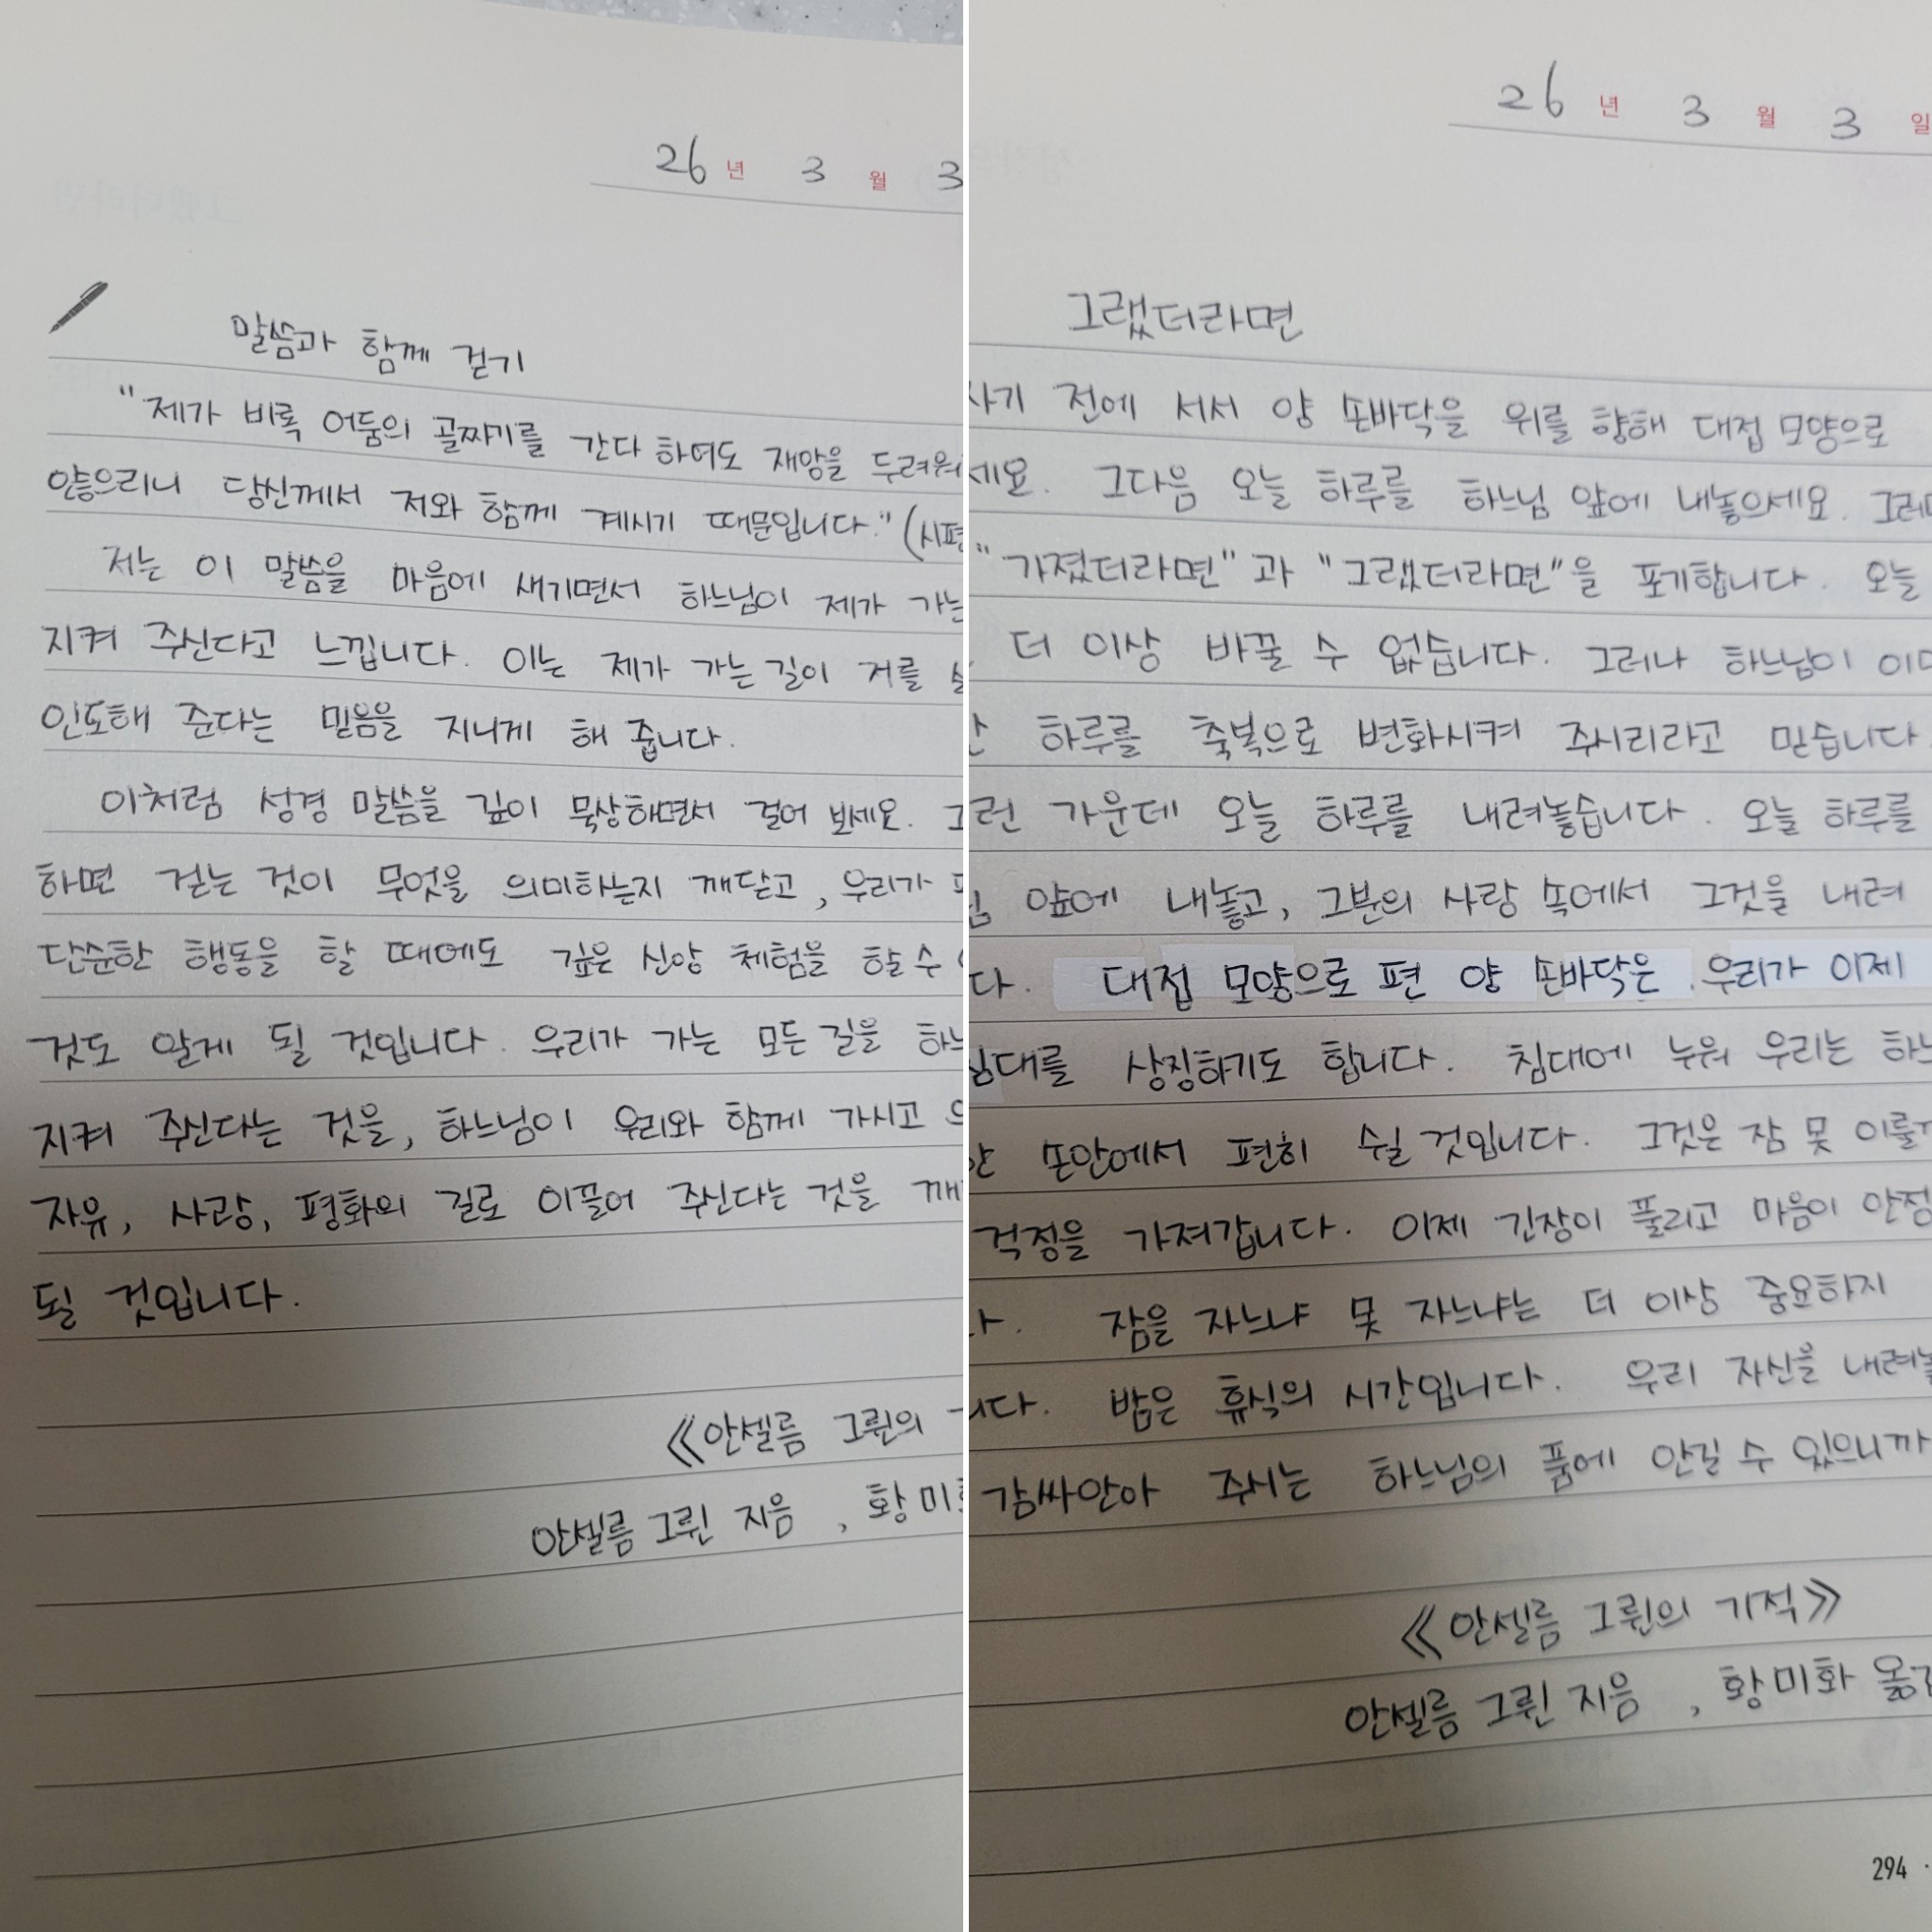 26년 3월 3
말씀과 함께 걷기
"제가 비록 어둠의 골짜기를 간다 하여도 재앙을 두려워
않으리니 당신께서 저와 함께 계시기 때문입니다." (시편
저는 이 말씀을 마음에 새기면서 하느님이 제가 가는
지켜 주신다고 느낍니다. 이는 제가 가는 길이 저를
인도해 준다는 믿음을 지니게 해 줍니다.
이처럼 성경 말씀을 깊이 묵상하면서 걸어 보세요.
하면 걷는 것이 무엇을 의미하는지 깨닫고, 우리가
단순한 행동을 할 때에도 깊은 신앙 체험을 할 수
것도 알게 될 것입니다. 우리가 가는 모든 길을 하느
지켜 주신다는 것을, 하느님이 우리와 함께 가시고
자유, 사랑, 평화의 길로 이끌어 주신다는 것을 깨
될 것입니다.
《안셀름 그륀의
안셀름 그륀 지음, 황미
26년 3월 3일
그랬더라면
자기 전에 서서 양 손바닥을 위를 향해 대접 모양으로
세요. 그다음 오늘 하루를 하느님 앞에 내놓으세요. 그러면
"가졌더라면"과 "그랬더라면"을 포기합니다. 오늘
더 이상 바꿀 수 없습니다. 그러나 하느님이
하루를 축복으로 변화시켜 주시리라고 믿습니다.
그런 가운데 오늘 하루를 내려놓습니다. 오늘 하루를
앞에 내놓고, 그분의 사랑 속에서 그것을 내려
다. 대접 모양으로 편 양 손바닥은 우리가 이제
침대를 상징하기도 합니다. 침대에 누워 우리는 하느
손안에서 편히 쉴 것입니다. 그것은 잠 못 이룰까
걱정을 가져갑니다. 이제 긴장이 풀리고 마음이 안정
다. 잠을 자느냐 못 자느냐는 더 이상 중요하지
니다. 밤은 휴식의 시간입니다. 우리 자신을 내려놓
감싸안아 주시는 하느님의 품에 안길 수 있으니까
《안셀름 그륀의 기적》
안셀름 그륀 지음, 황미화 옮김
294